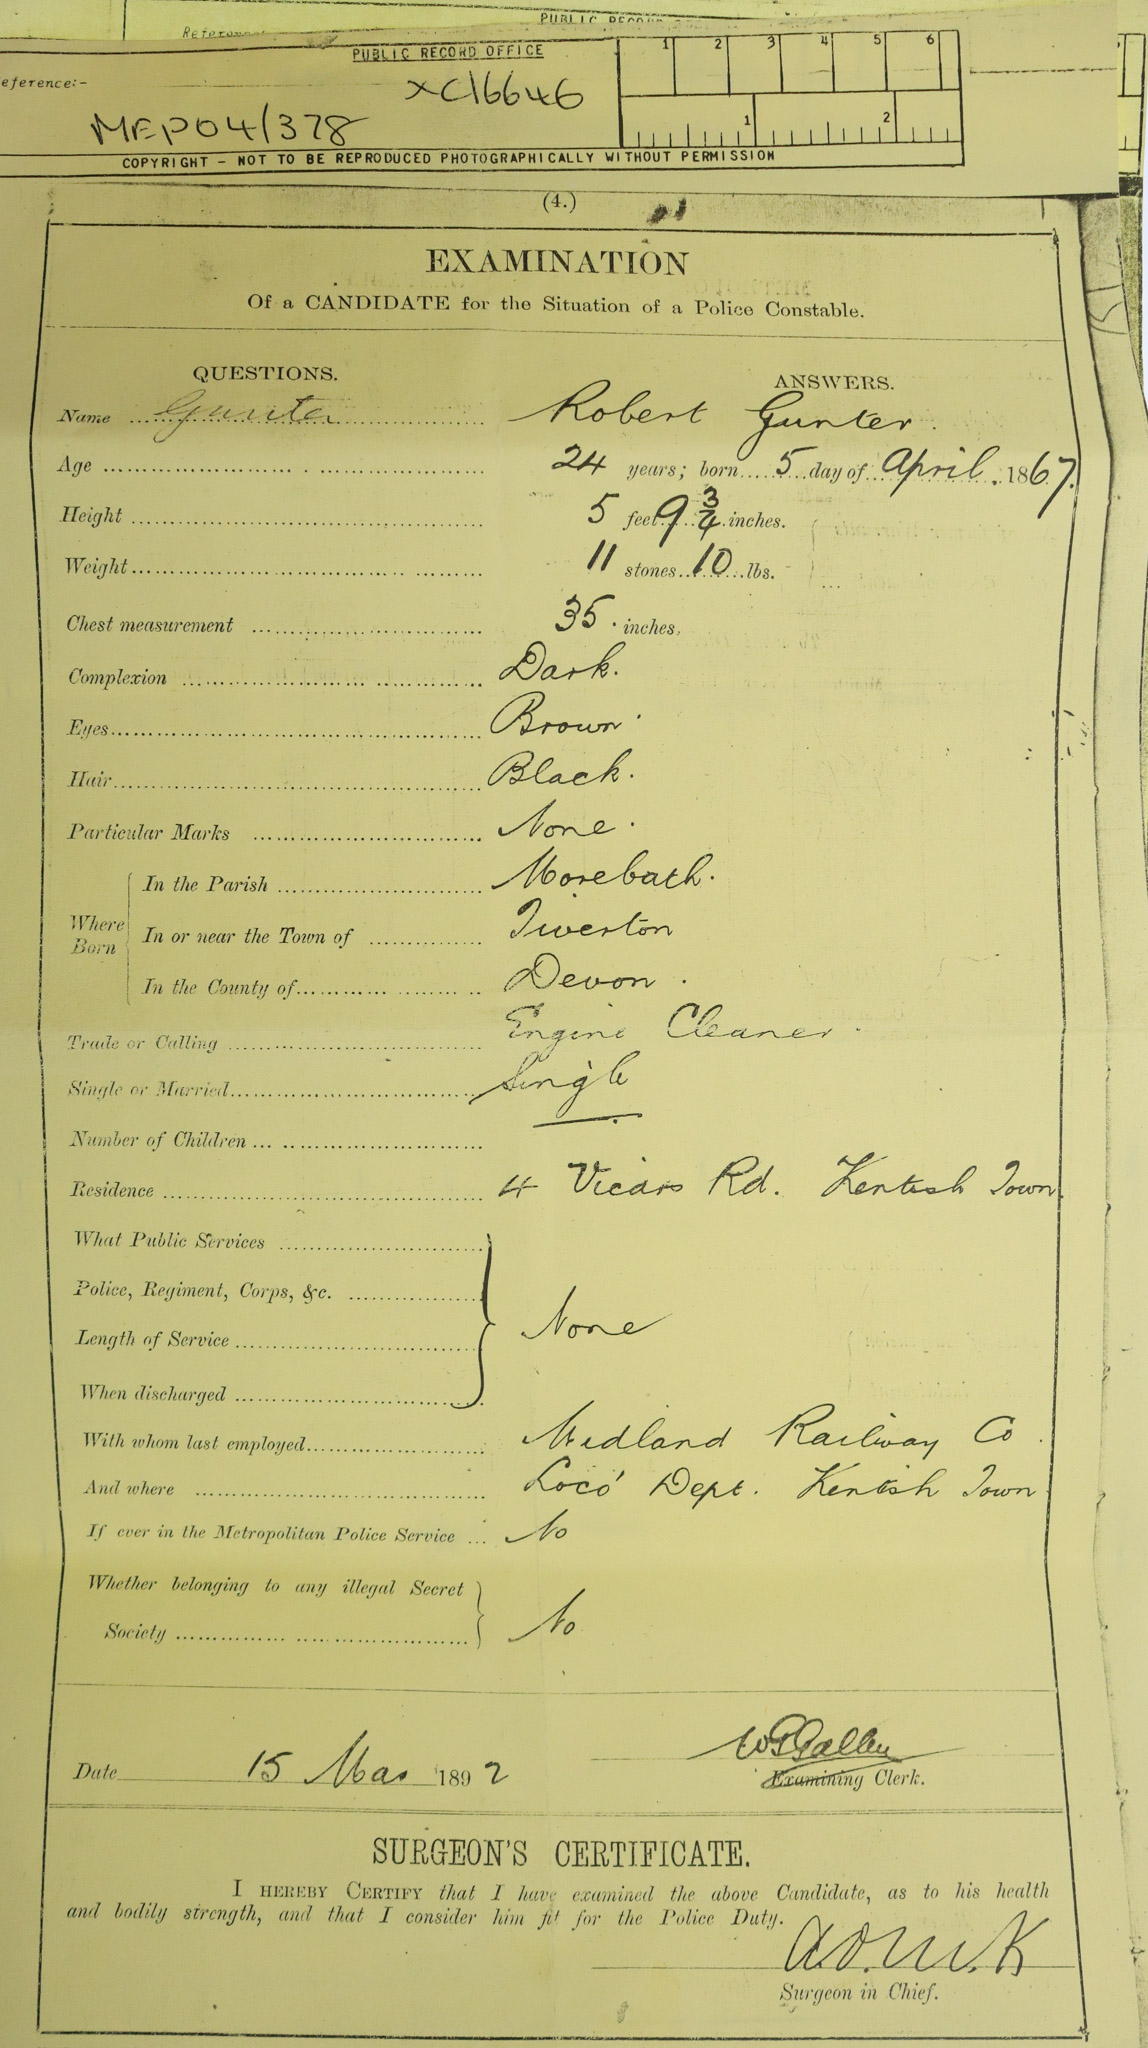 PUBLIC RECO
Reference
PUBLIC RECORD OFFICE
eference:-
XC16646
MEPO4/378
1 2 3 4 5 6
1 2
COPYRIGHT - NOT TO BE REPRODUCED PHOTOGRAPHICALLY WITHOUT PERMISSION
(4.)
EXAMINATION
Of a CANDIDATE for the Situation of a Police Constable.
QUESTIONS. ANSWERS.
Name Gunter Robert Gunter.
Age 24 years; born 5 day of April. 1867.
Height 5 feet 9 3/4 inches.
Weight 11 stones 10 lbs.
Chest measurement 35. inches.
Complexion Dark.
Eyes Brown
Hair Black.
Particular Marks None.
Where Born In the Parish Morebath.
In or near the Town of Tiverton
In the County of Devon.
Trade or Calling Engine Cleaner.
Single or Married Single
Number of Children —
Residence 4 Vicars Rd. Kentish Town.
What Public Services
Police, Regiment, Corps, &c.
Length of Service None
When discharged
With whom last employed Midland Railway Co.
And where Loco' Dept. Kentish Town
If ever in the Metropolitan Police Service ... No
Whether belonging to any illegal Secret
Society No
Date 15 Mar 1892
Examining Clerk.
SURGEON'S CERTIFICATE.
I HEREBY CERTIFY that I have examined the above Candidate, as to his health
and bodily strength, and that I consider him fit for the Police Duty.
Surgeon in Chief.